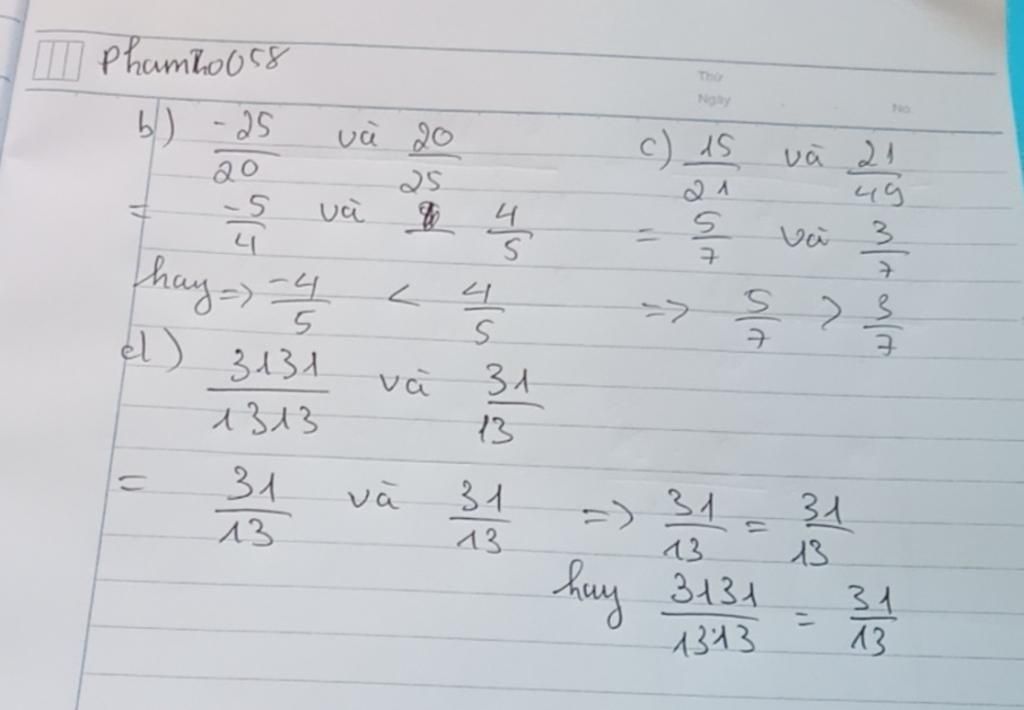 Phamtz0058
Thứ
Ngày
No.
b) -25/20 và 20/25
= -5/4 và 4/5
hay => -4/5 < 4/5
c) 15/21 và 21/49
= 5/7 và 3/7
=> 5/7 > 3/7
d) 3131/1313 và 31/13
= 31/13 và 31/13 => 31/13 = 31/13
hay 3131/1313 = 31/13